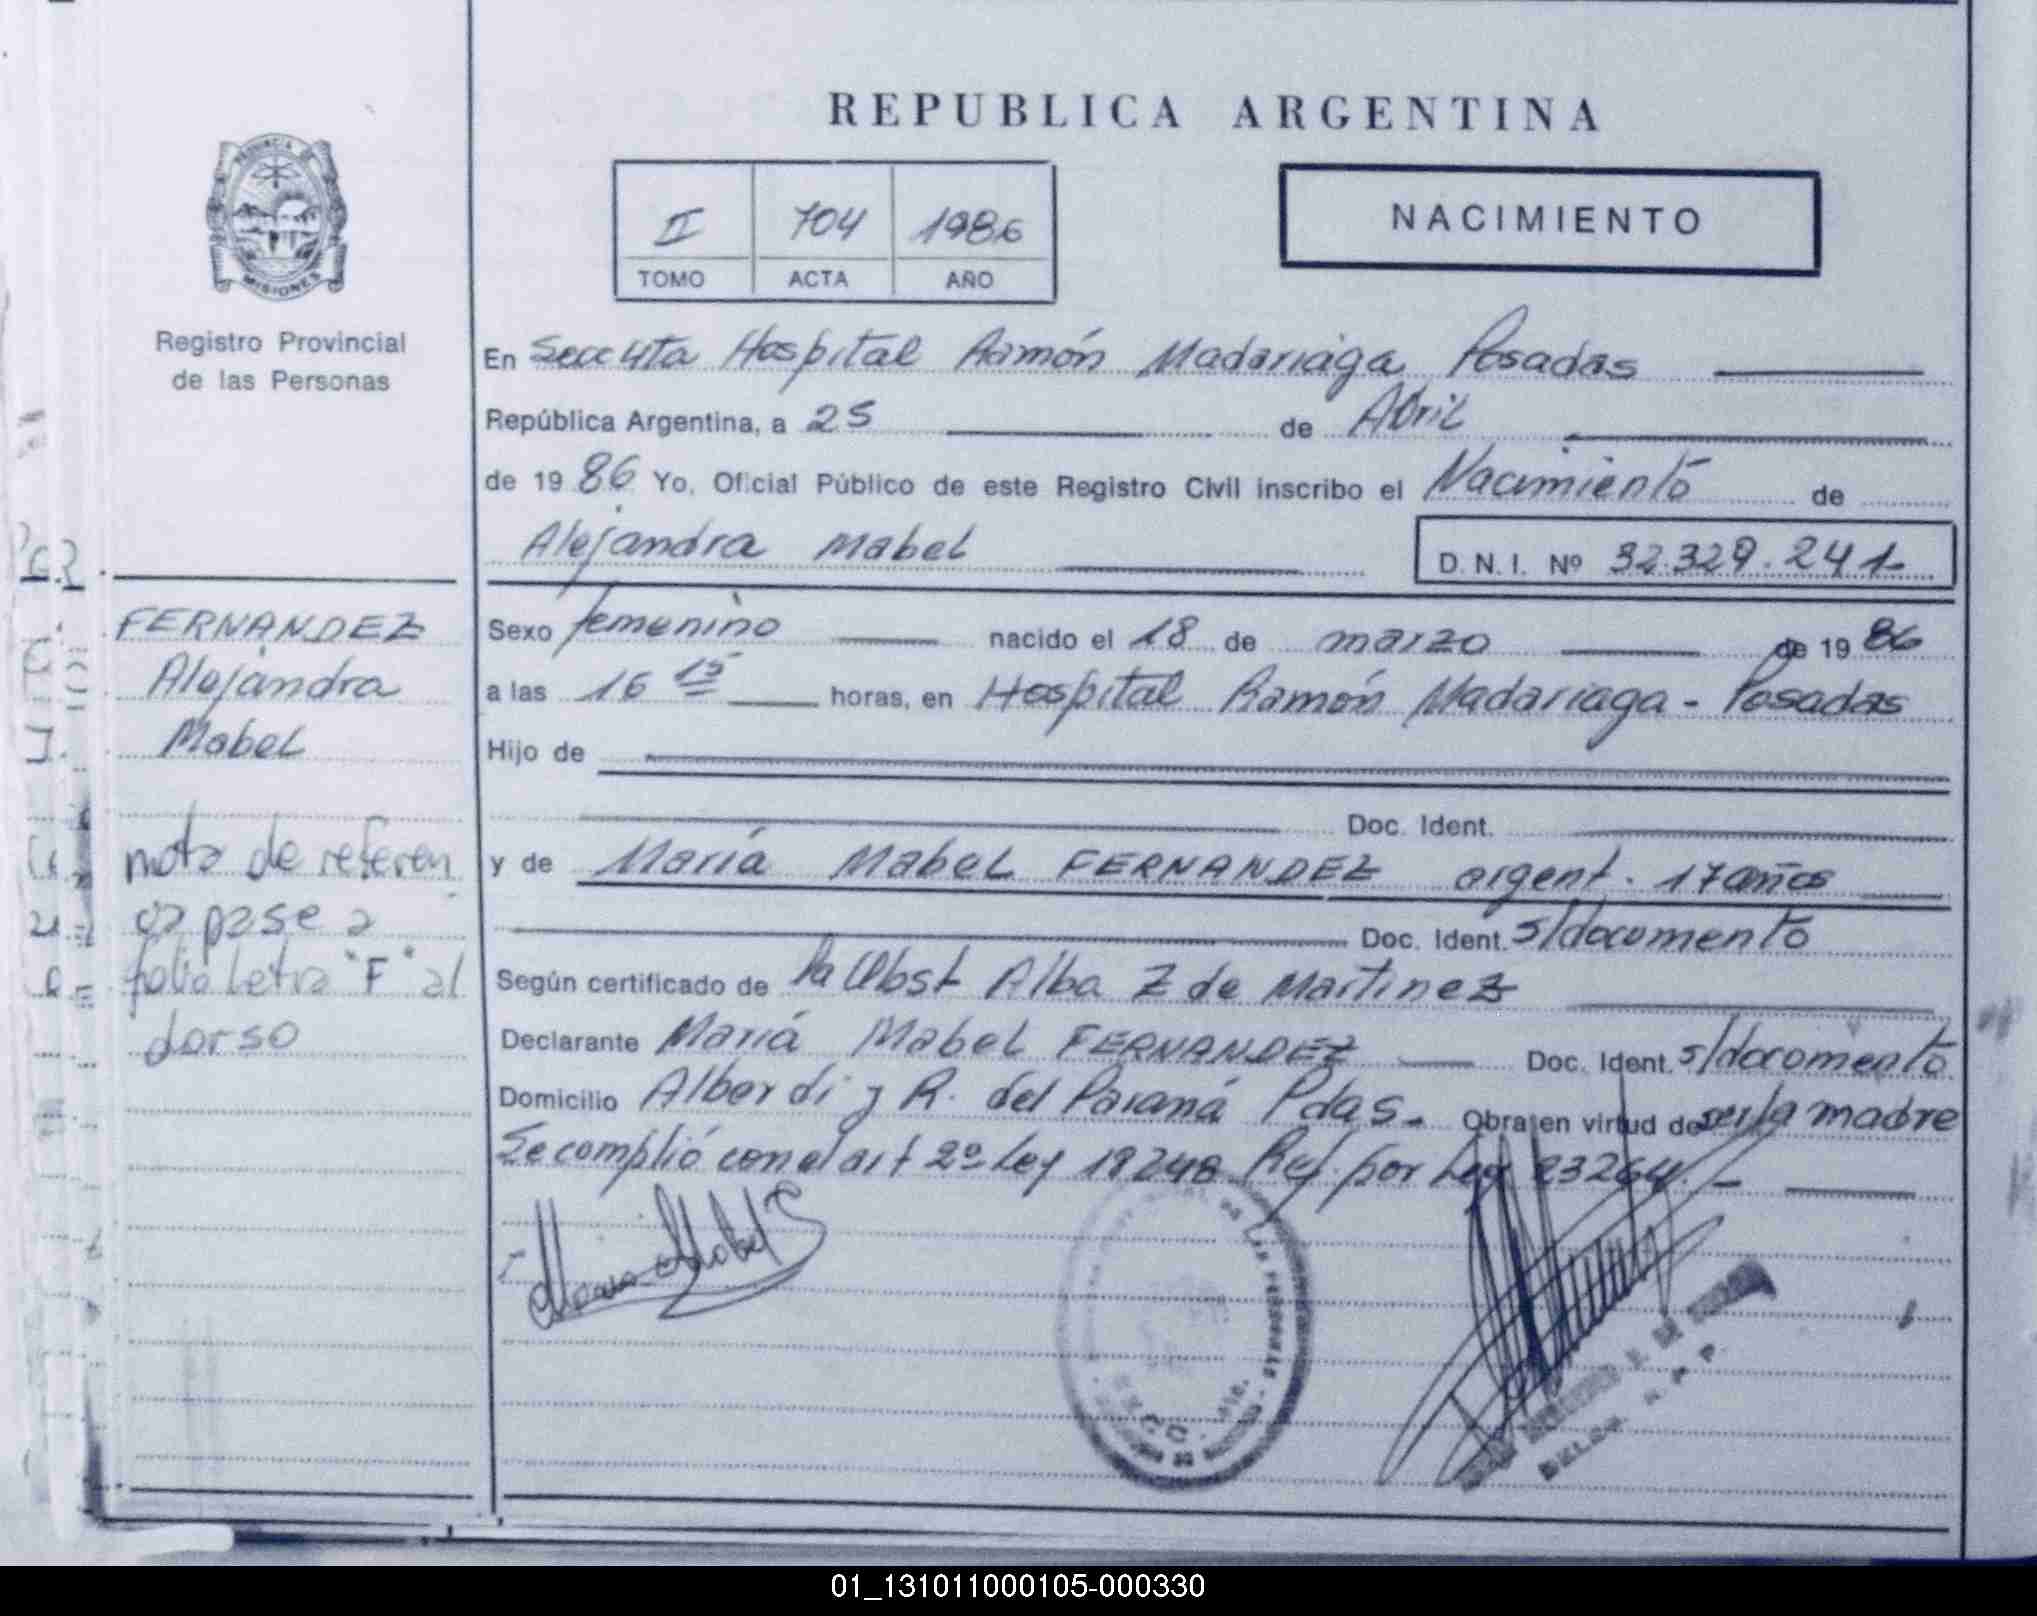 REPUBLICA ARGENTINA
PROVINCIA DE
MISIONES
Registro Provincial
de las Personas
II 704 1986
TOMO ACTA AÑO
NACIMIENTO
En Secc 4ta Hospital Ramón Madariaga Posadas
República Argentina, a 25 de Abril
de 1986 Yo, Oficial Público de este Registro Civil inscribo el Nacimiento de
Alejandra Mabel D.N.I. Nº 32.329.241.-
FERNANDEZ
Alejandra
Mabel
nota de referen
cia pase a
folio Letra "F" al
dorso
Sexo femenino nacido el 18 de marzo de 1986
a las 16 15 horas, en Hospital Ramón Madariaga - Posadas
Hijo de
Doc. Ident.
y de María Mabel FERNANDEZ argent. 17 años
Doc. Ident. s/documento
Según certificado de la Obst Alba Z de Martinez
Declarante María Mabel FERNANDEZ Doc. Ident. s/documento
Domicilio Alberdi y R. del Paraná Pdas. Obra en virtud de ser la madre
Se complió con el art 2º Ley 18248 Ref. por Ley 23264.-
Maria Mabel
01_131011000105-000330